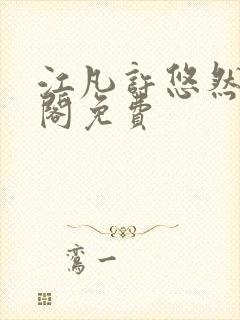 江凡許悠然
閣免費
鸾一